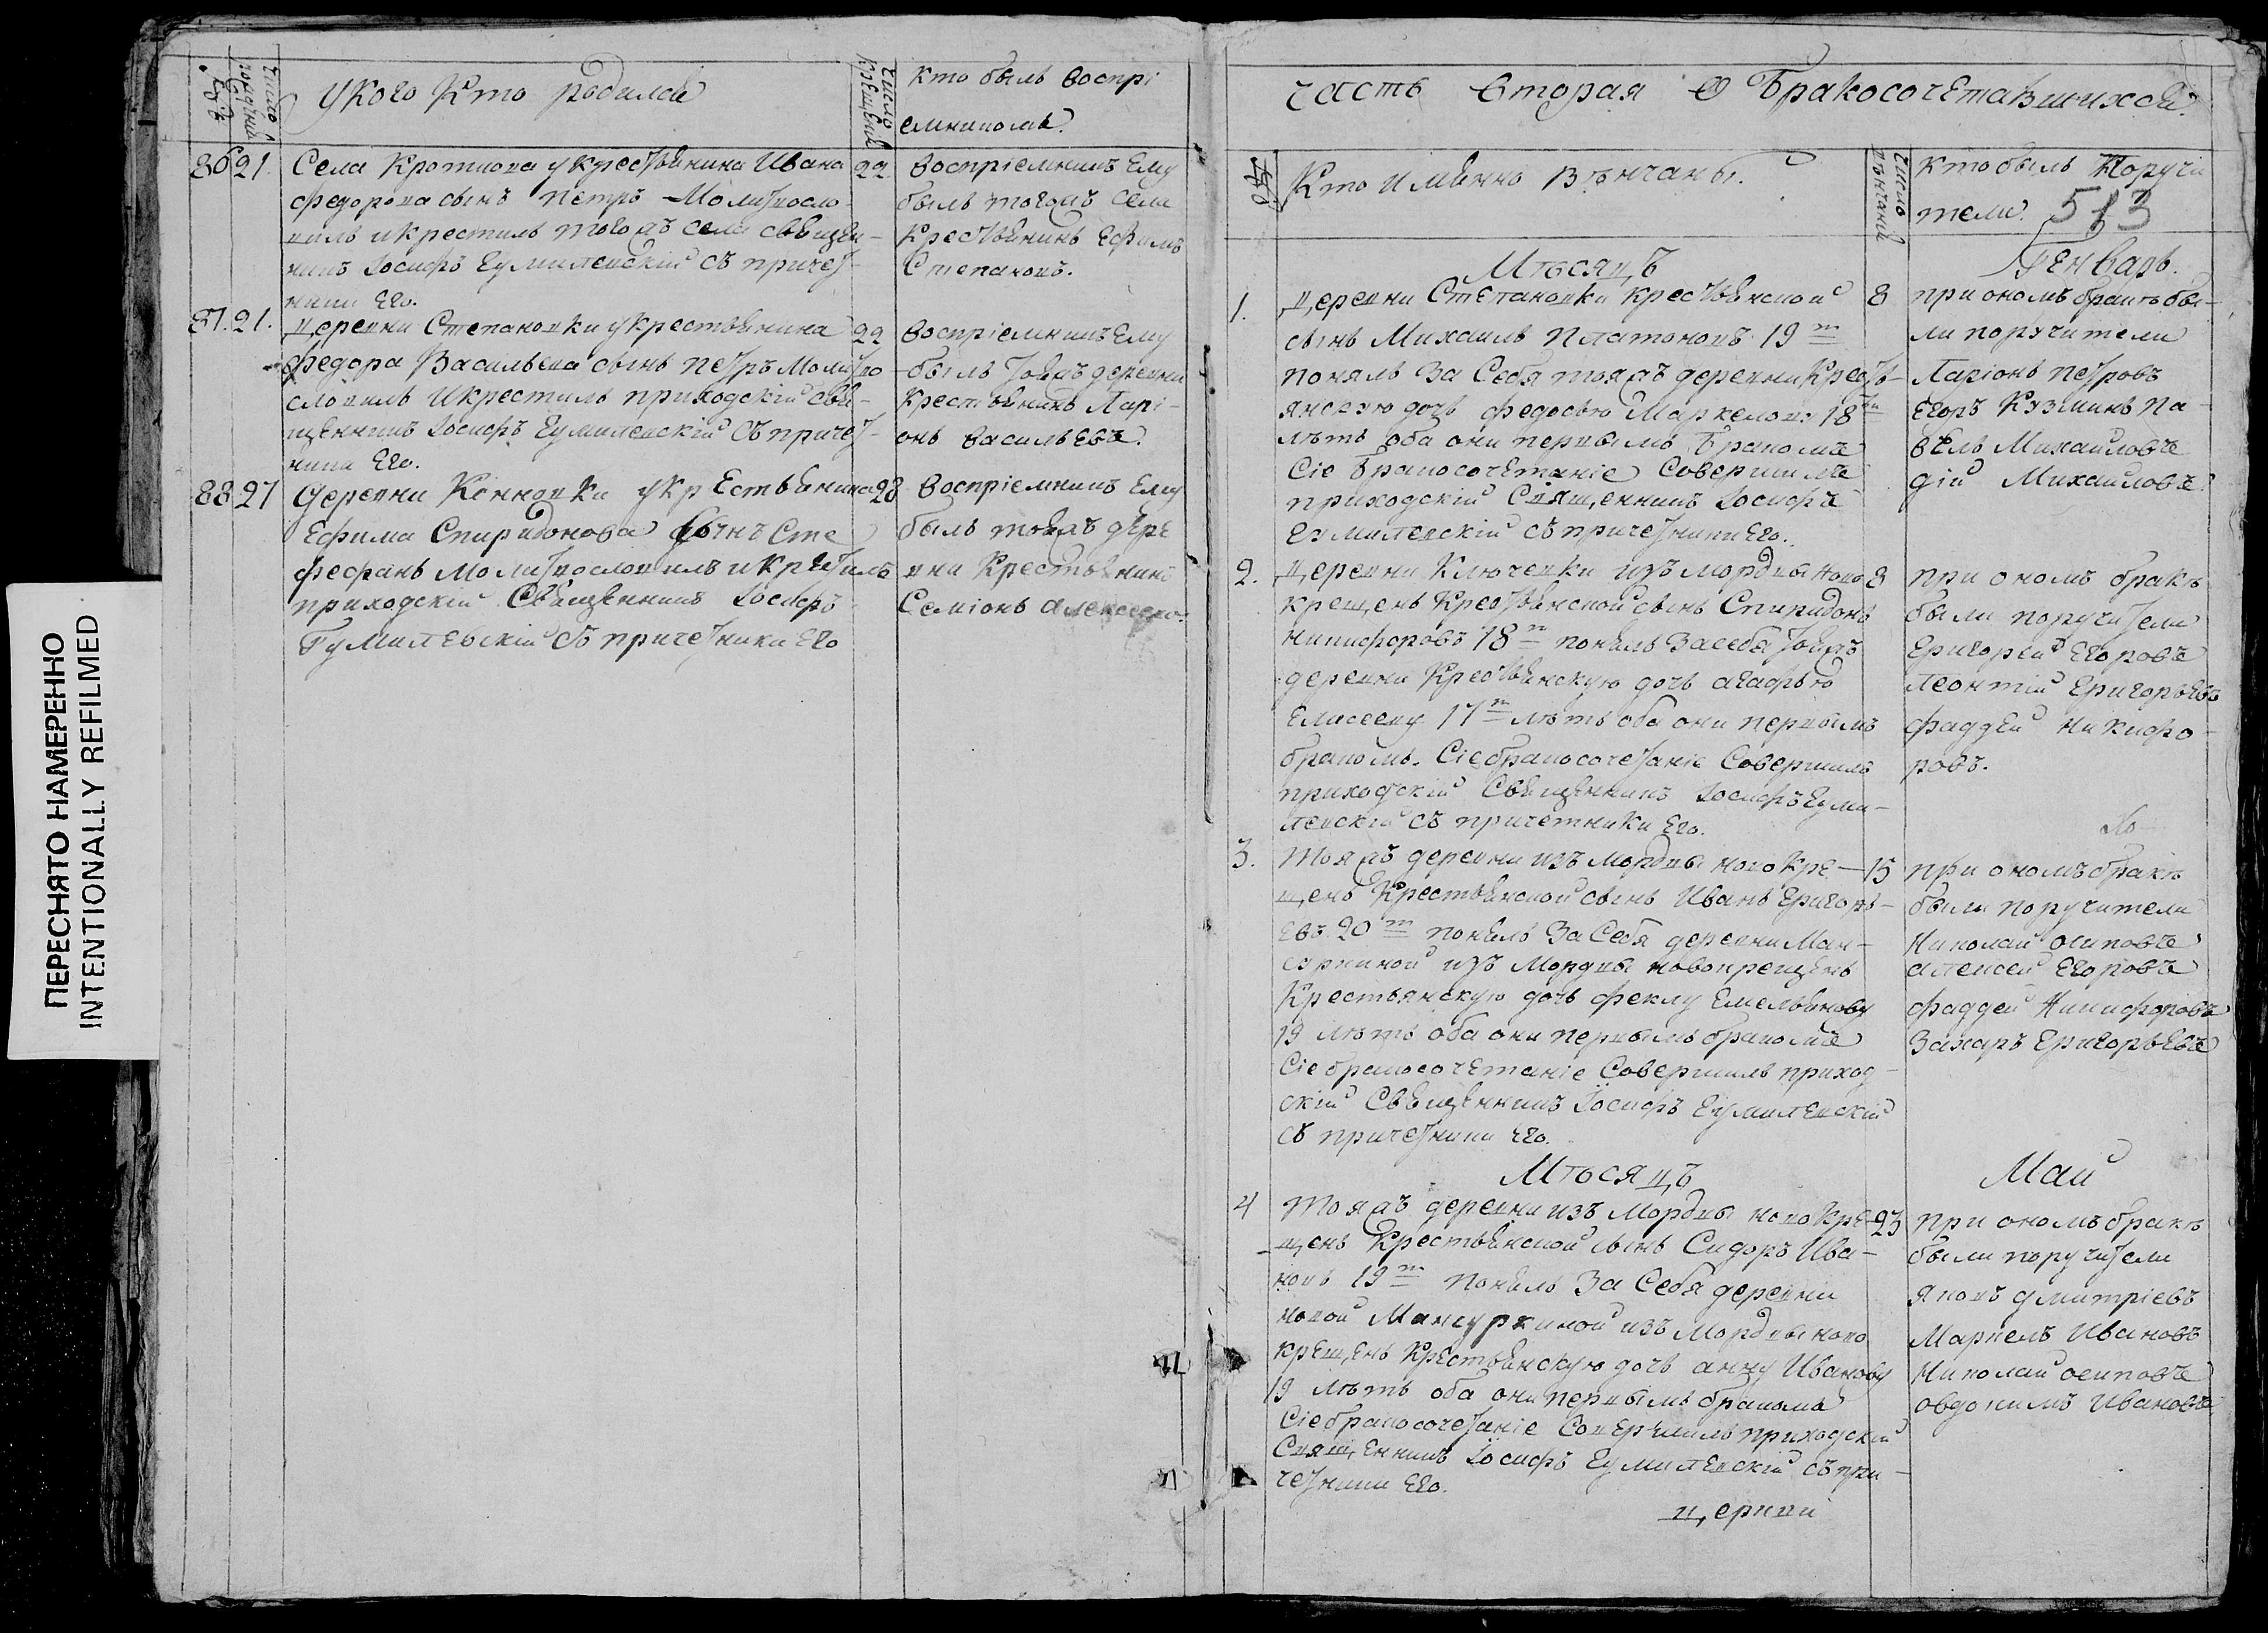 ПЕРЕСНЯТО НАМЕРЕННО
INTENTIONALLY REFILMED
число рожденій
У кого кто родился
число крещенія
Кто былъ воспрі
емникомъ.
86 21. Села Кроткова у крестьянина Ивана 22
федорова сынъ петръ Молитвосло
вилъ и крестилъ тогожъ села священ-
никъ Іосифъ Гумилевскій съ причет-
ники Его.
Воспріемникъ Ему
былъ тогожъ села
Крестьянинъ Ефимъ
Степановъ.
87. 21. Деревни Степановки у крестьянина 22
федора Васильева сынъ петръ Молитво
словилъ и крестилъ приходскій свя-
щенникъ Іосифъ Гумилевскій съ причет-
ники Его.
Воспріемникъ Ему
былъ тояжъ деревни
Крестьянинъ Ларі-
онъ Васильевъ.
88 27 Деревни у крестьянина 28
Ефима Спиридонова сынъ Сте
фефанъ Молитвословилъ и крестилъ
приходскій Священникъ Іосифъ
Гумилевскій съ причетники Его
Воспріемникъ Ему
былъ тояжъ дере
вни Крестьянинъ
Семіонъ
часть вторая о Бракосочетавшихся.
Кто имянно вѣнчаны.
число вѣнчаній
Кто былъ Поручи
тели. 513
Мѣсяцъ Генварь.
1. Деревни Степановки крестьянской 8
сынъ Михаилъ Платоновъ 19 т
понялъ за себя тояжъ деревни Кресть-
янскую дочь федосью Маркелову 18 ти
лѣтъ оба они первымъ бракомъ
Сіе бракосочетаніе Совершилъ
приходскій Священникъ Іосифъ
Гумилевскій съ причетники Его.
при ономъ бракѣ бы-
ли поручители
Ларіонъ петровъ
Егоръ Кузминъ Па-
велъ Михаиловъ
дій Михаиловъ
2. Деревни Ключевки изъ мордвы ново 8
крещенъ Крестьянской сынъ Спиридонъ
никифоровъ 18 т понялъ за себя тояжъ
деревни Крестьянскую дочь агафью
Елисееву 17 т лѣтъ оба они первымъ
бракомъ. Сіе бракосочетаніе Совершилъ
приходскій Священникъ Іосифъ Гуми-
левскій съ причетники Его.
при ономъ бракѣ
были поручители
Григорей Егоровъ
леонтій Григорьевъ
фаддей никифо-
ровъ.
3. Тояжъ деревни изъ мордвы новокре- 15
щенъ Крестьянской сынъ Иванъ Григорь-
евъ 20 т понялъ за себя деревни Ман-
суркиной изъ Мордвы новокрещенъ
Крестьянскую дочь феклу Емельянову
19 лѣтъ оба они первымъ бракомъ
Сіе бракосочетаніе Совершилъ приход-
скій Священникъ Іосифъ Гумилевскій
съ причетники Его.
при ономъ бракѣ
были поручители
Николай осиповъ
алексей Егоровъ
фаддей Никифоровъ
Захаръ Григорьевъ
Мѣсяцъ Май
4 Тояжъ деревни изъ Мордвы новокре- 23
щенъ Крестьянской сынъ Сидоръ Ива-
новъ 19 т понялъ За Себя деревни
новой Мансуркиной изъ Мордвы ново
крещенъ Крестьянскую дочь анну Иванову
19 лѣтъ оба они первымъ бракомъ
Сіе бракосочетаніе Совершилъ приходскій
Священникъ Іосифъ Гумилевскій съ при-
четники Его.
при ономъ бракѣ
были поручители
Яковъ дмитріевъ
Маркелъ Ивановъ
Николай осиповъ
овдокимъ Ивановъ
церкви